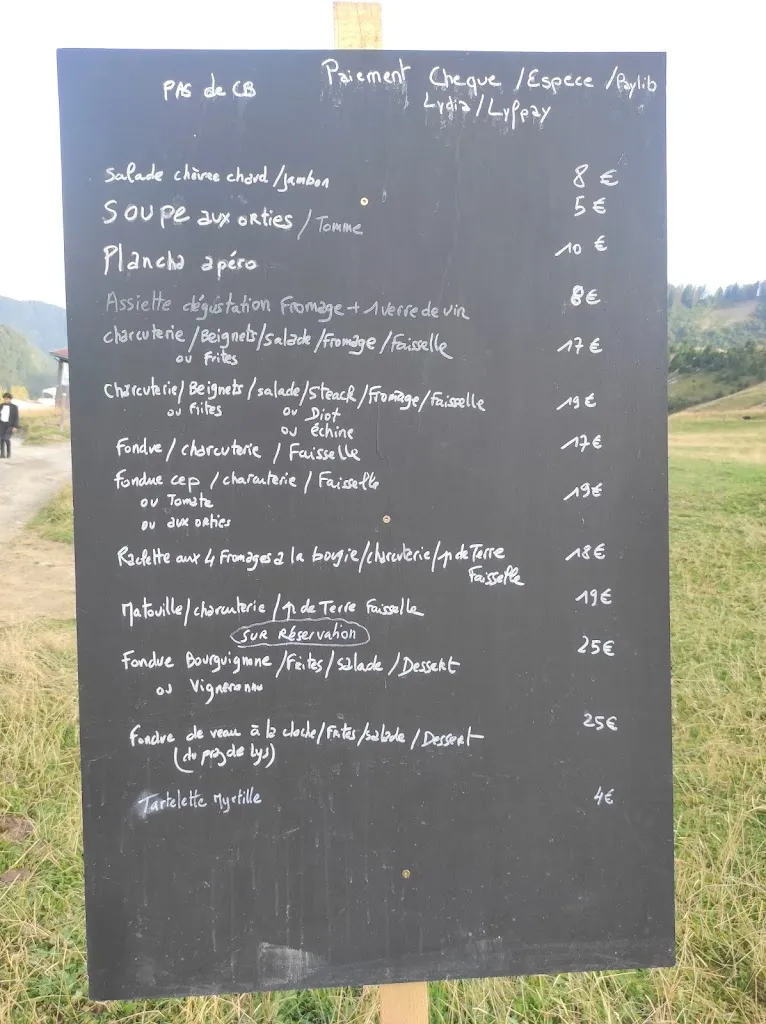 PAS de CB
Paiement Cheque / Espece / Paylib
Lydia / Lyfpay
Salade chèvre chaud / jambon 8 €
Soupe aux orties / Tomme 5 €
Plancha apéro 10 €
Assiette dégustation Fromage + 1 verre de vin 8€
charcuterie / Beignets / salade / Fromage / Faisselle 17 €
ou Frites
Charcuterie / Beignets / salade / steack / Fromage / Faisselle 19 €
ou Frites ou Diot
ou échine
Fondue / charcuterie / Faisselle 17€
Fondue cep / charcuterie / Faisselle 19€
ou Tomate
ou aux orties
Raclette aux 4 Fromages a la bougie / charcuterie / p de Terre 18€
Faisselle
Matouille / charcuterie / p de Terre Faisselle 19€
SUR Réservation
Fondue Bourguignonne / Frites / salade / Dessert 25€
ou Vigneronne
Fondue de veau à la cloche / Frites / salade / Dessert 25€
(du praz de lys)
Tartelette Myrtille 4€